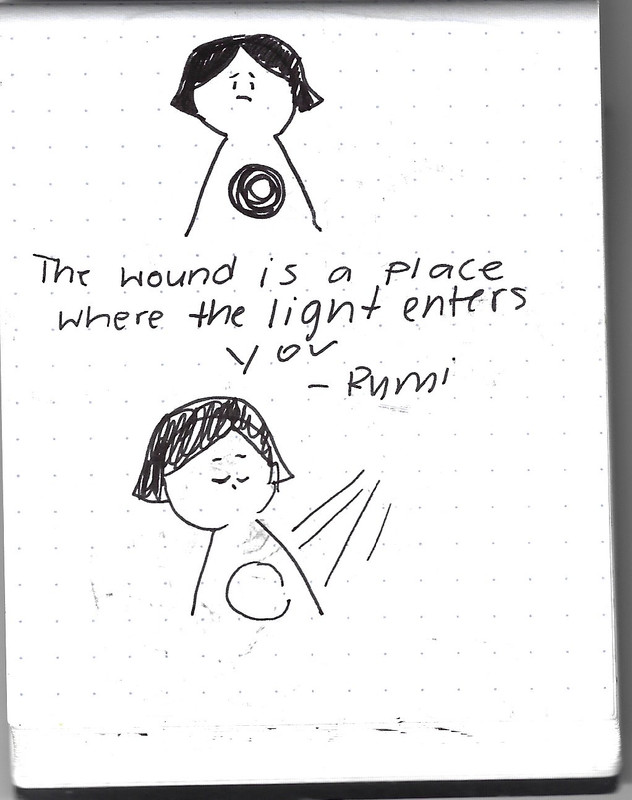 The wound is a place
where the light enters
you
- Rumi